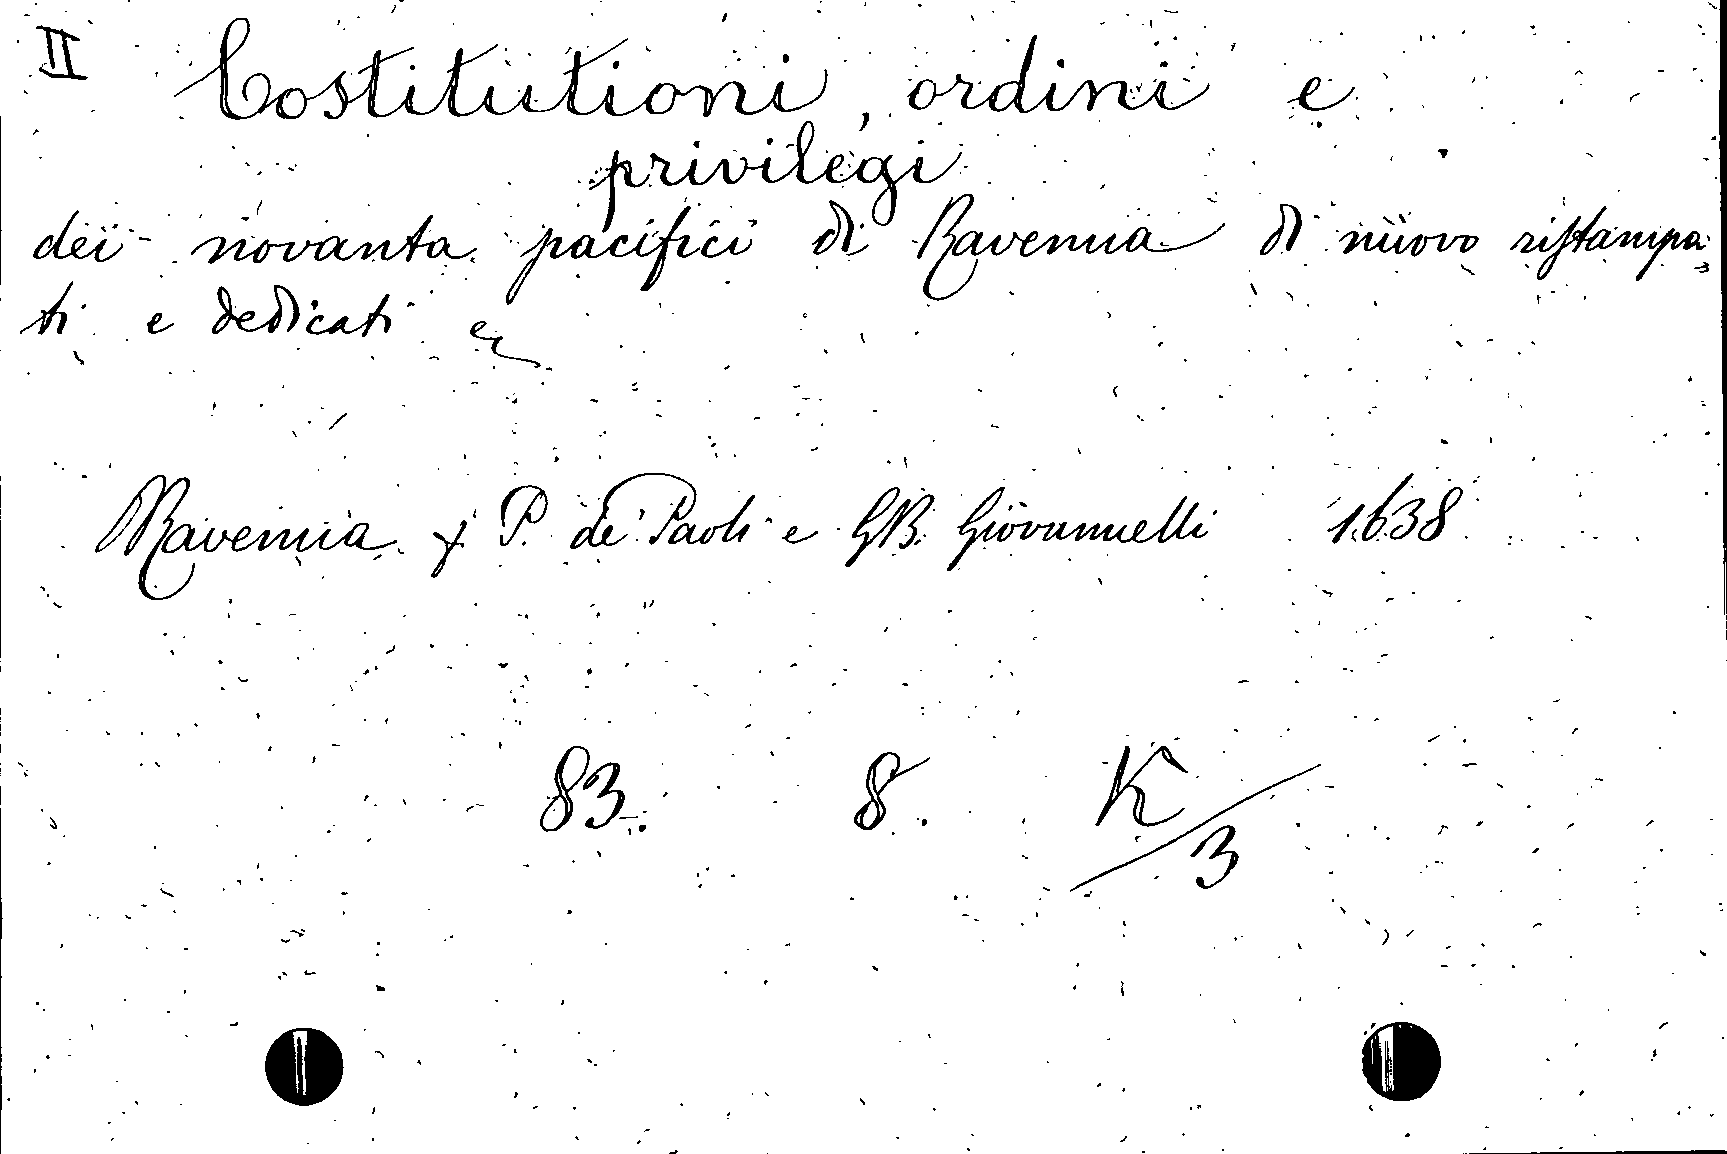 II Costitutioni, ordini e
privilegi
dei novanta pacifici di Ravenna di nuovo ristampa
ti e dedicati
Ravenna P. de' Paoli e GB. Giovannelli 1638
83. 8. K/3